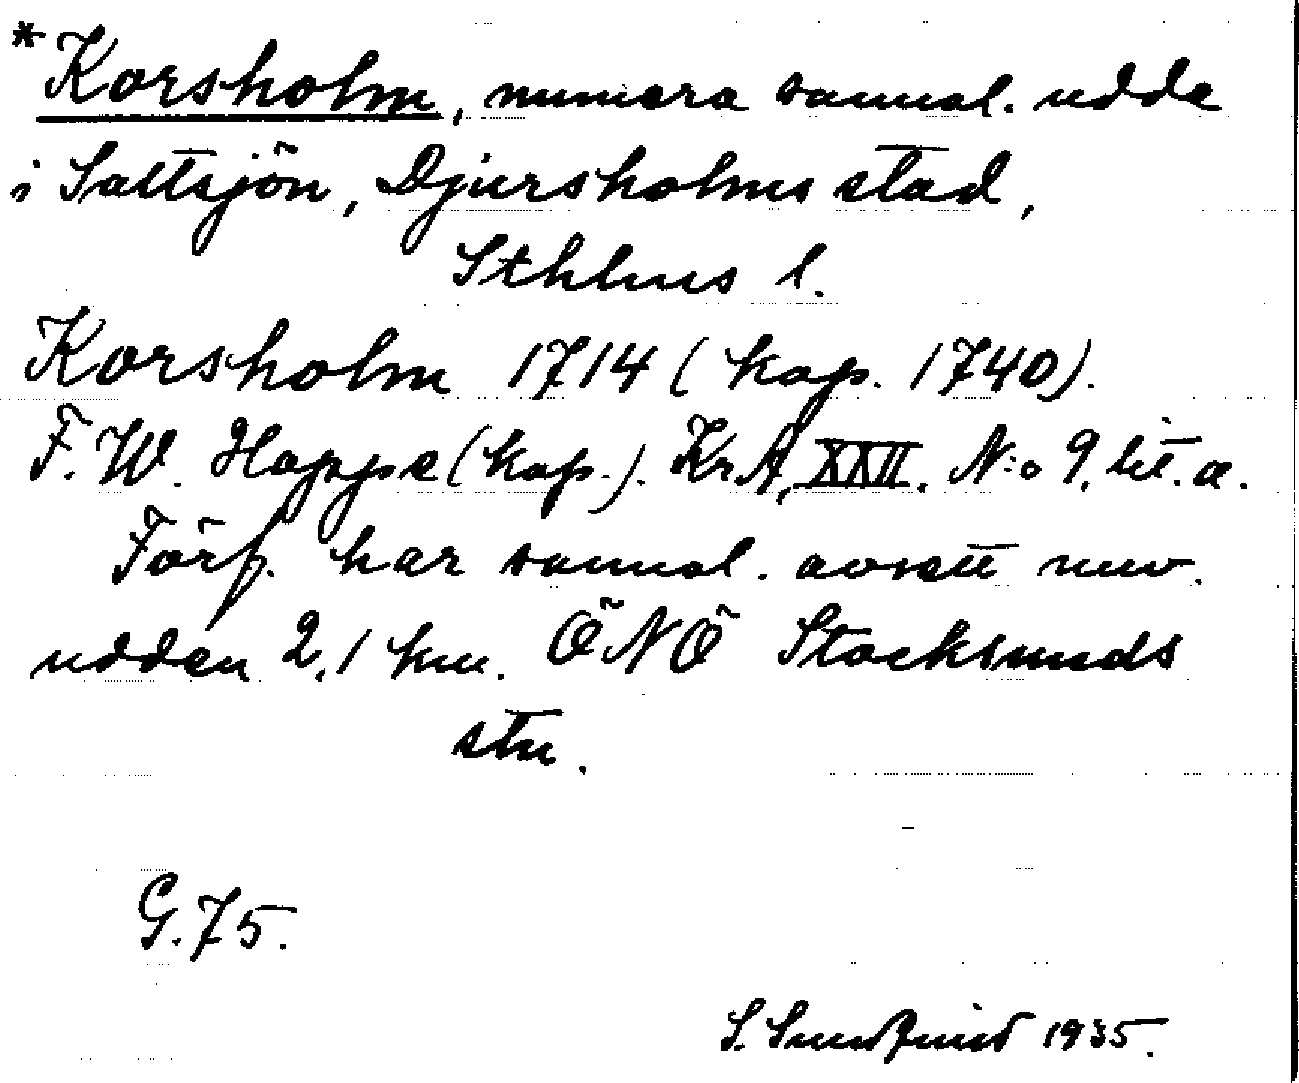 *Korsholm, numera sannol. udde
i Saltsjön, Djursholms stad,
Sthlms l.
Korsholm 1714 (kop. 1740).
F. W. Hoppe (kop.). KrA, XXII. N:o 9, lit. a.
Förf. har sannol. avsett nuv.
udden 2,1 km. ÖNÖ Stocksunds
stn.
G. 75.
S. Sundquist 1935.